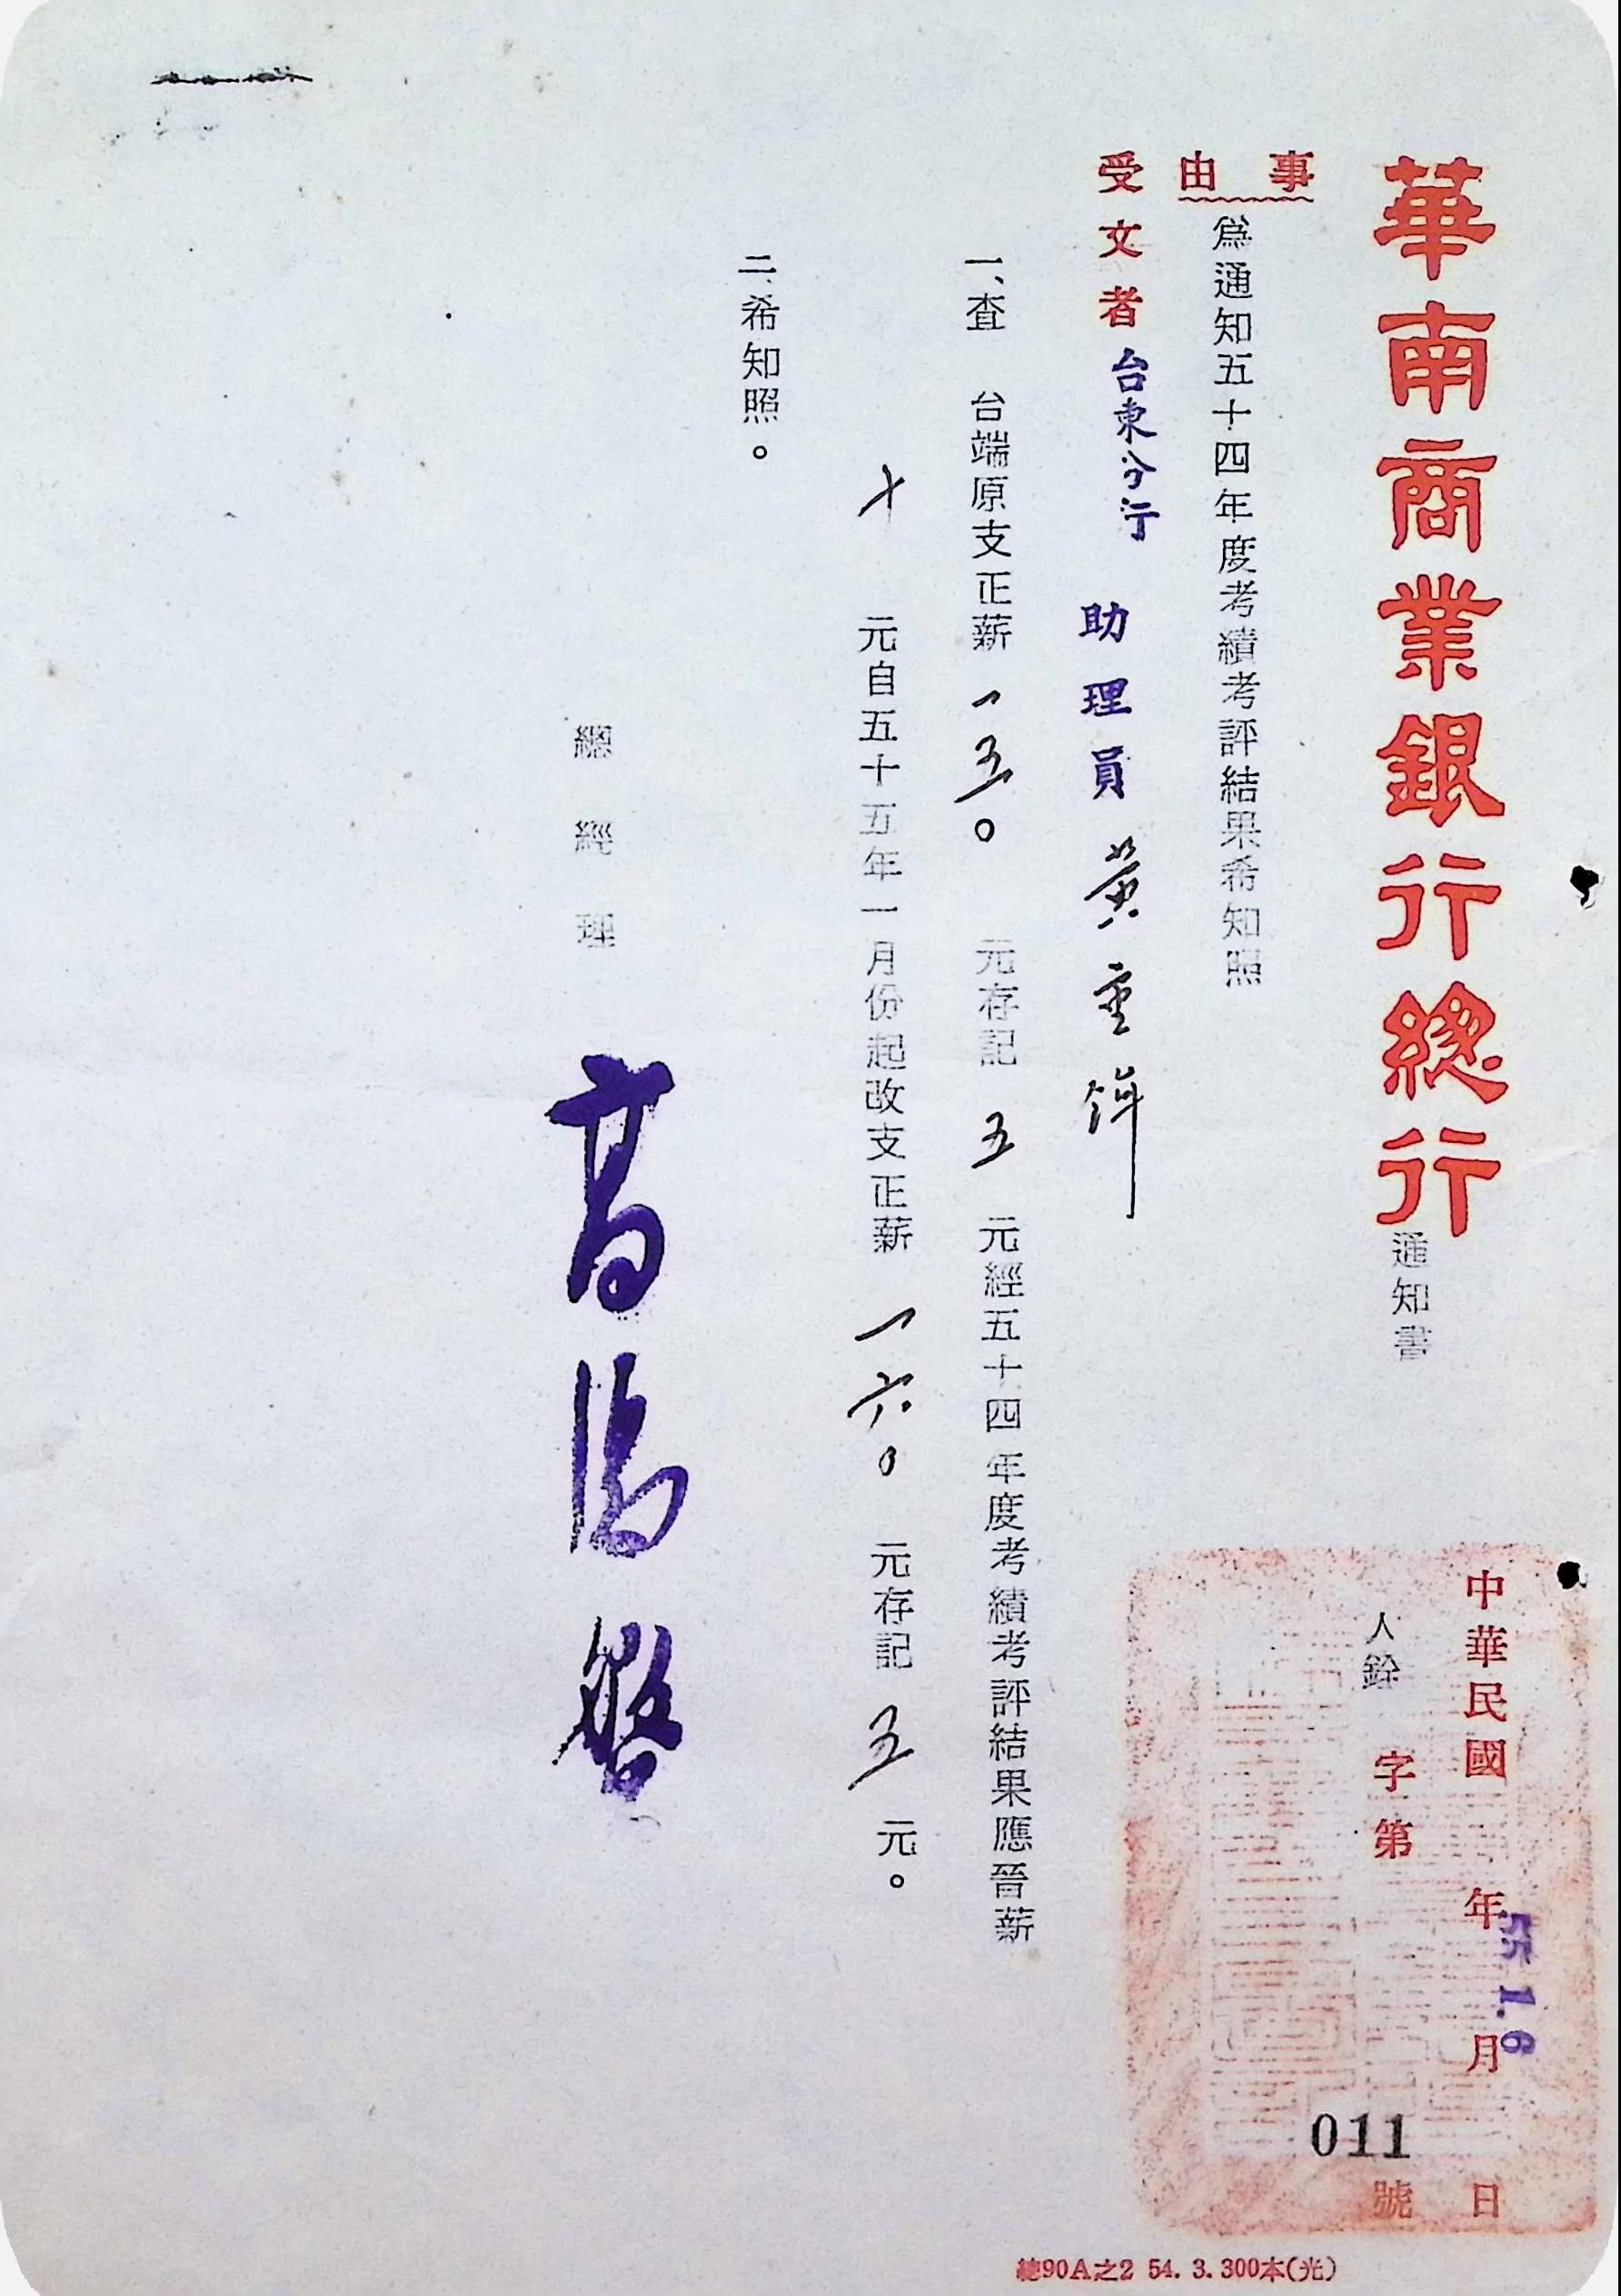 華南商業銀行總行通知書
中華民國 年 月 日
55 1. 6
人銓 字第 011 號
事由 為通知五十四年度考績考評結果希知照
受文者 台東分行 助理員 黃重
一、查 台端原支正薪 一五〇 元存記 五 元經五十四年度考績考評結果應晉薪
十 元自五十五年一月份起改支正薪 一六〇 元存記 五 元。
二、希知照。
總經理 高湯盤
總90A之2 54. 3. 300本(光)